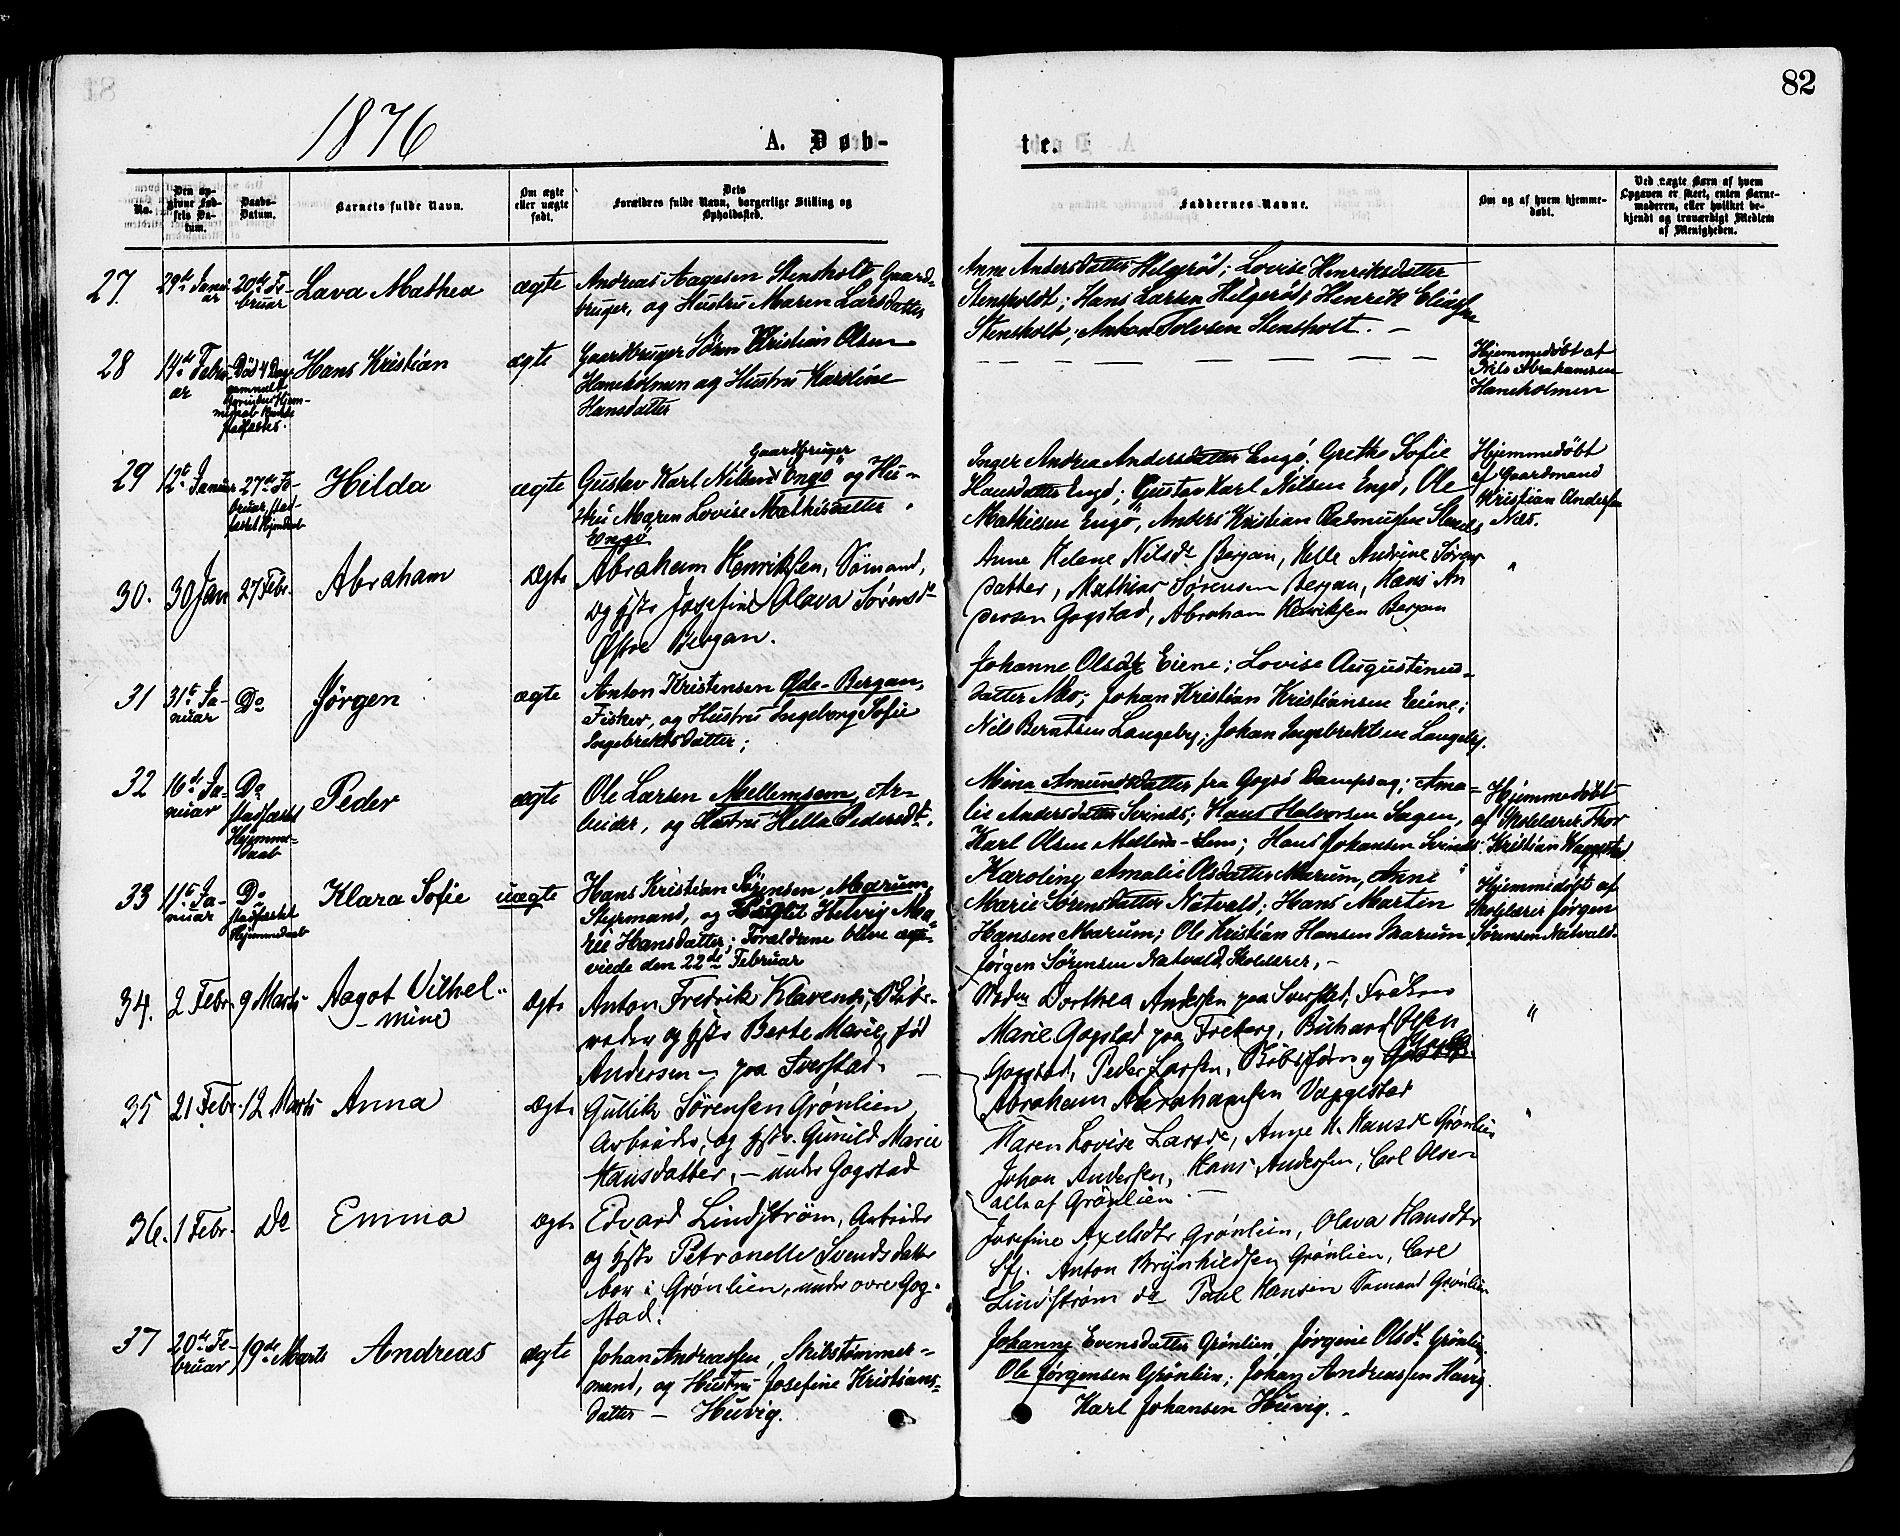 82
1876
A. Døb-
te.
No.
Den op-
givne Fød-
sels Da-
tum.
Daabs-
Datum.
Barnets fulde Navn.
Om ægte
eller uægte
født.
Dets
Forældres fulde Navn, borgerlige Stilling og
Opholdssted.
Faddernes Navne.
Om og af hvem hjemme-
døbt.
Ved uægte Børn af hvem
Opgaven er skeet, enten Barne-
moderen, eller hvilket be-
kjendt og troværdigt Medlem
af Menigheden.
27.
29de Janu-
ar
20de Fe-
bruar
Lava Mathea
ægte
Andreas Aagesen Stensholt, Gaard-
bruger, og Hustru Maren Larsdatter
Anne Andersdatter Helgerød; Lovise Henriksdatter
Stensholdt; Hans Larsen Helgerød; Henrik Eliassen
Stensholt; Anton Tolvsen Stensholt. —
28
14de Febru-
ar
Død 4 Dage
gammelt
Hans Kristian
ægte
Gaardbruger Sören Christian Olsen
Haneholmen og Hustru Karoline
Hansdatter
Hjemmedöbt af
Nils Abrahamsen
Haneholmen
29
12te Januar
27de Fe-
bruar stad-
fæstet Hjemdaab
Hilda
ægte
Gaardbruger
Gustav Karl Nilsen Engö og Hu-
stru Maren Lovise Mathisdatter.
Engö
Inger Andrea Andersdatter Engö, Grethe Sofie
Hansdatter Engö; Gustav Karl Nilsen Engö, Ole
Mathisen Engö, Anders Kristian Rasmussen
Hjemmedöbt
af Gaardmand
Kristian Andersen
Næs.
30.
30 Jan
27 Febr.
Abraham
Ægte
Abraham Henriksen, Sömand,
og Hstr Josefine Olava Sörensdr
Østre Bergan.
Anne Helene Nilsdr Bergan, Helle Andrine Sören-
datter, Mathias Sörensen Bergan, Hans An
dersen Gogstad, Abraham Henriksen Bergan
"
31
31te Ja-
nuar
Do
Jörgen
ægte
Anton Kristensen Øde-Bergan,
Fisker, og Hustru Ingeborg Sofie
Ingebrektsdatter;
Johanne Olsdtr Eiene; Lovise Augustinus-
datter Mo; Johan Kristian Kristiansen Eiene;
Nils Berntsen Langeby; Johan Ingebrektsen Langeby.
32
16de Ja-
nuar
Do
stadfæstet
Hjemme-
daab
Peder
ægte
Ole Larsen Mellemsem, Ar-
beider, og Hustru Hella Pedersdtr.
Mina Amundsdatter fra Gogsö Dampsag; Ama-
lie Andersdatter Svinds; Hans Halvorsen Sagen,
Karl Olsen Mellem-Sem; Hans Johansen Svinds.
Hjemmedöbt
af Skolelærer Thor
Kristian Waggestad
33
11te Ja-
nuar
Do
stadfæstet
Hjemmedaab
Klara Sofie
uægte
Hans Kristian Sörensen Marum,
Styrmand, og Pige Helvig Ma-
rie Hansdatter; Forældrene bleve egte-
viede den 22de Februar
Karoline Amalie Olsdatter Marum, Anne
Marie Sörensdatter Natvald; Hans Martin
Hansen Marum; Ole Kristian Hansen Marum
Jörgen Sörensen Natvald, Skolelærer, —
Hjemmedöbt af
Skolelærer Jörgen
Sörensen Natvald.
34.
2 Febr.
9 Marts
Aagot Vilhel-
-mine
Ægte
Anton Fredrik Klavenes, Skibs-
reder og Hstr Berte Marie, född
Andersen — paa Tverstad.
Dorthea Andersen paa Tverstad, Fröken
Marie Gogstad paa Freberg, Richard Olsen
Gogstad, Peder Larsen,
Abraham Abrahamsen Vaggestad
"
35
21 Febr.
12 Marts
Anna
Ægte
Gullik Sörensen Grönlien
Arbeider, og Hstr. Gunild Marie
Hansdatter, — under Gogstad
Maren Lovise Larsdr, Anne M. Hansdr Grönlien
Johan Andersen, Hans Andersen, Carl Olsen
alle af Grönlien. —
"
36.
1 Febr.
Do
Emma
Ægte
Edvard Lindström, Arbeider
og Hstr Petronelle Svendsdatter
bor i Grönlien, under övre Gog-
stad.
Josefine Axelsdtr Grönlien, Olava Hansdtr
Anton Brynhildsen Grönlien, Carl
Lindström do Paul Hansen Sömand Grönlien
37
20de Fe-
bruar
19de Marts
Andreas
ægte
Johan Andreassen, Skibstömmer-
mand, og Hustru Josefine Kristians-
datter — Huvig.
Johanne Evensdatter Grönlien, Jörgine Olsdtr Grönlien,
Ole Jörgensen Grönlien; Johan Andreassen Huvig.
Karl Johansen Huvig.